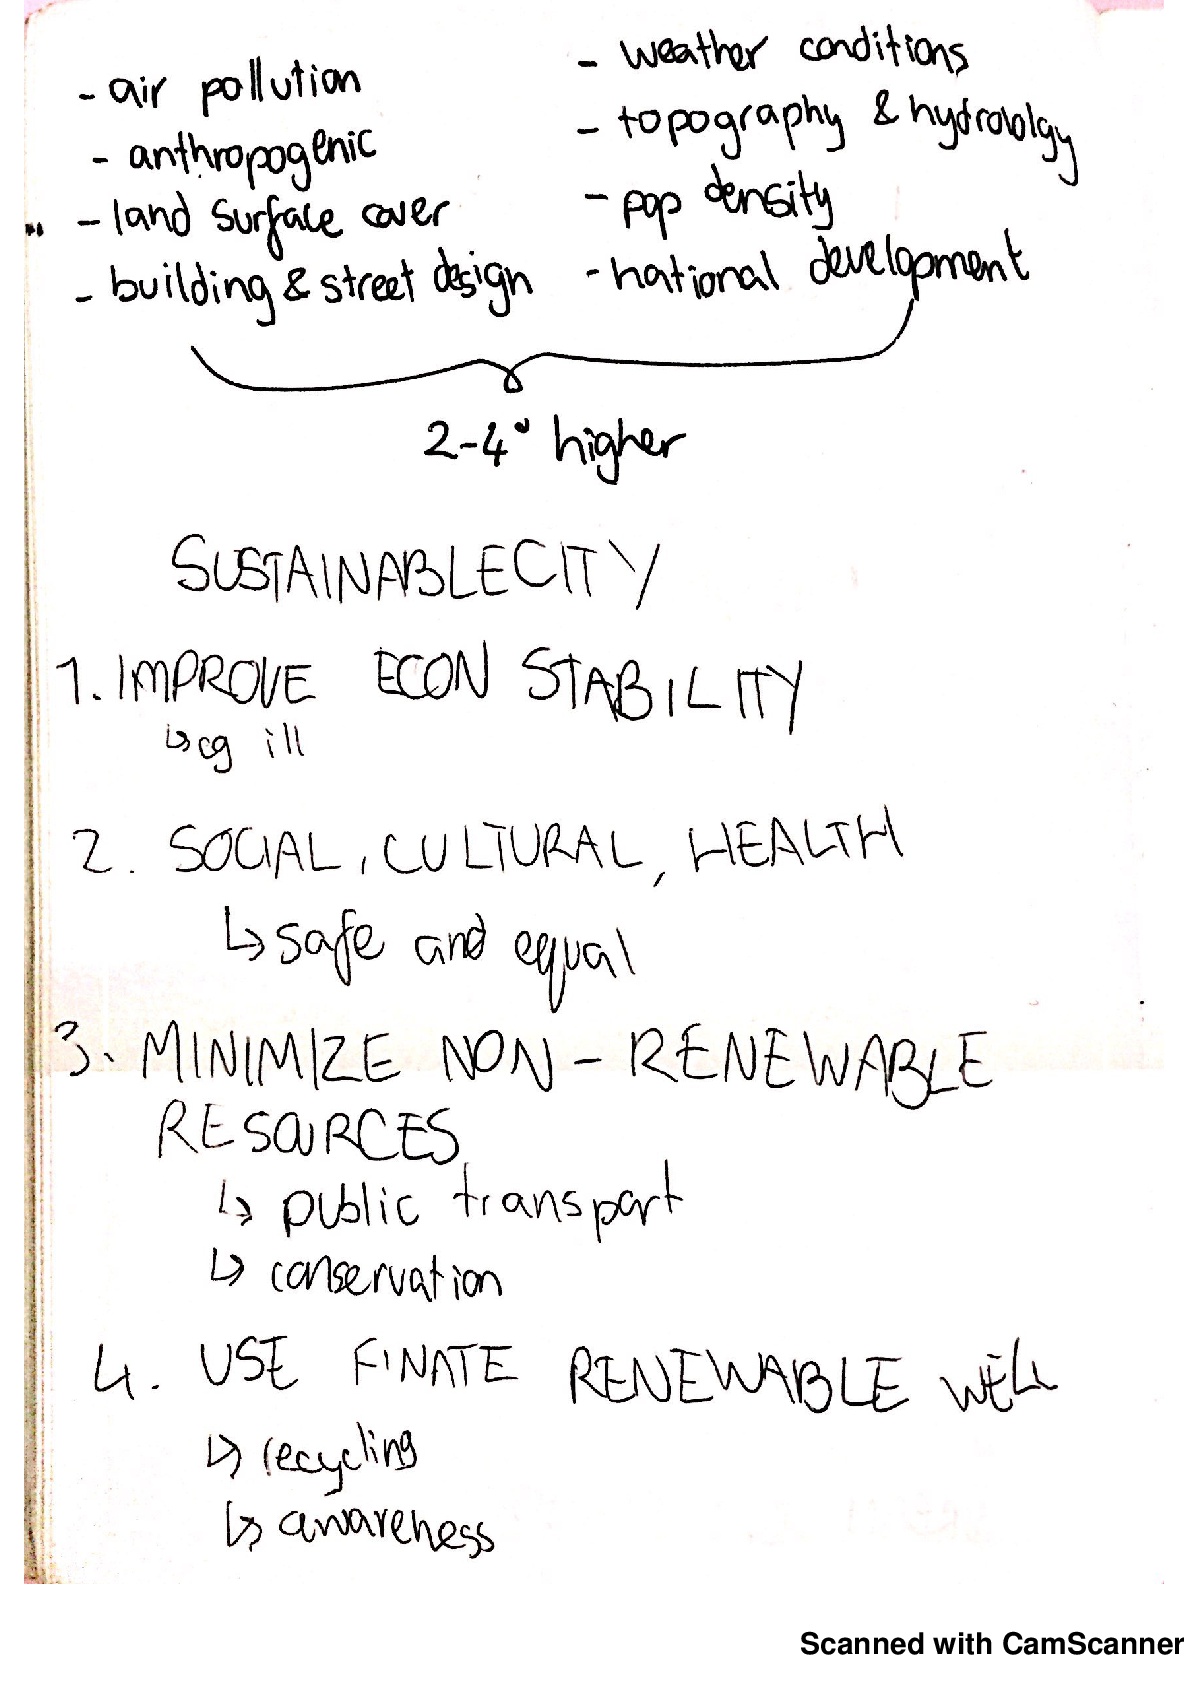 - air pollution
- anthropogenic
- land surface cover
- building & street design
- weather conditions
- topography & hydrololgy
- pop density
- national development
2-4° higher
SUSTAINABLECITY
1. IMPROVE ECON STABILITY
↳ cg ill
2. SOCIAL, CULTURAL, HEALTH
↳ safe and equal
3. MINIMIZE NON-RENEWABLE
RESOURCES
↳ public transport
↳ conservation
4. USE FINATE RENEWABLE WELL
↳ recycling
↳ awareness
Scanned with CamScanner